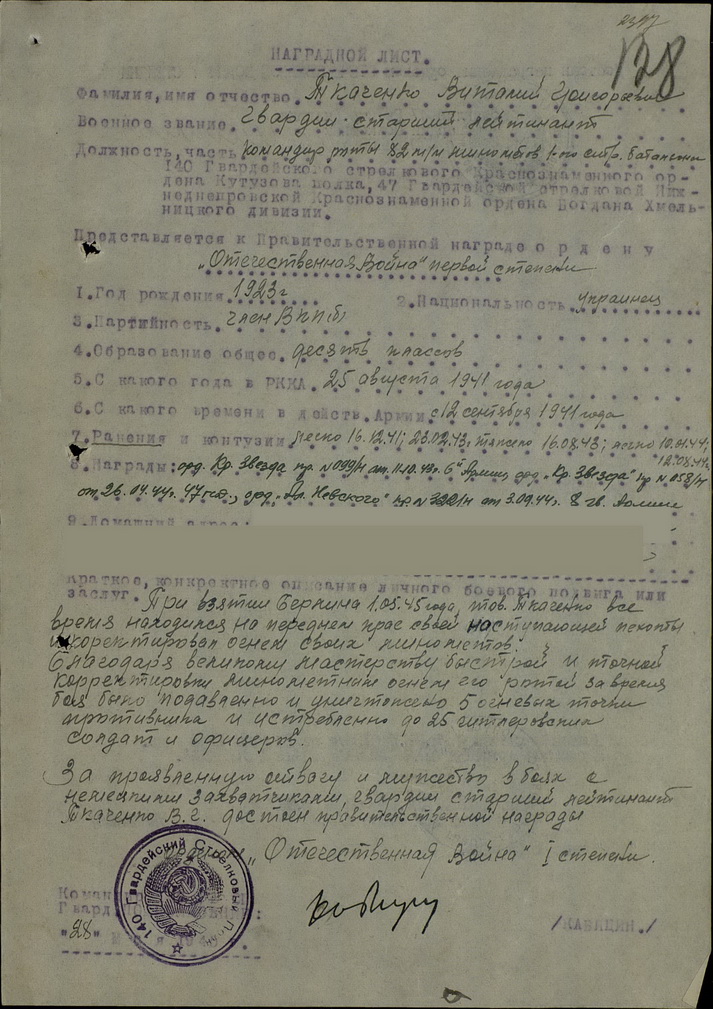 128
НАГРАДНОЙ ЛИСТ.
Фамилия, имя отчество. Ткаченко Виталий Григорьевич
Военное звание. Гвардии старший лейтинант
Должность, часть командир роты 82 м/м минометов 1-го стр. батальона
140 Гвардейского стрелкового Краснознаменного ор-
дена Кутузова полка, 47 Гвардейской стрелковой Ниж-
неднепровской Краснознаменной ордена Богдана Хмель-
ницкого дивизии.
Представляется к Правительственной награде ордену
"Отечественная Война" первой степени
1. Год рождения 1923 г 2. Национальность украинец
3. Партийность. член ВКП(б)
4. Образование общее. десять классов
5. С какого года в РККА. 25 августа 1941 года
6. С какого времени в действ. Армии с 12 сентября 1941 года
7. Ранения и контузии легко 16.12.41; 23.02.43, тяжело 16.08.43; легко 10.01.44;
12.08.44г.
8. Награды: орд. Кр. Звезда пр. №099/н от 11.10.43г. 6 Армии, орд. "Кр. Звезда" пр №058/н
от 26.04.44г. 47 гсд., орд. "Ал. Невского" пр №322/н от 3.09.44г. 8 гв. Армии
9. Домашний адрес:
Краткое, конкретное описание личного боевого подвига или
заслуг. При взятии Берлина 1.05.45 года, тов. Ткаченко все
время находился на переднем крае своей наступающей пехоты
и коректировал огнем своих минометов.
Благодаря великому мастерству быстрой и точной
корректировки минометным огнем его ротой за время
боя было подавленно и уничтожено 5 огневых точки
противника и истребленно до 25 гитлеровских
солдат и офицеров.
За проявленную отвагу и мужество в боях с
немецкими захватчиками, гвардии старший лейтинант
Ткаченко В.Г. достоен правительственной награды
"Отечественная Война" I степени.
140 Гвардейский Стрелковый Полк
"28"
/КАБЛЦИН./